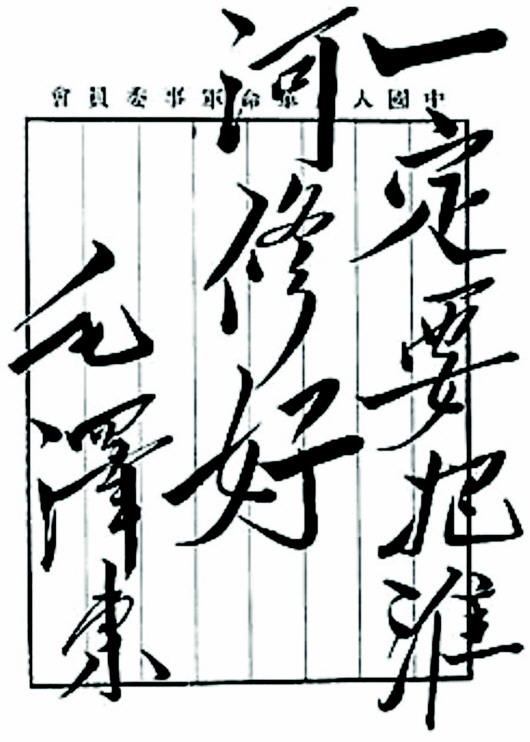 中國人 革命軍事委員會
一定要把淮
河修好
毛澤東